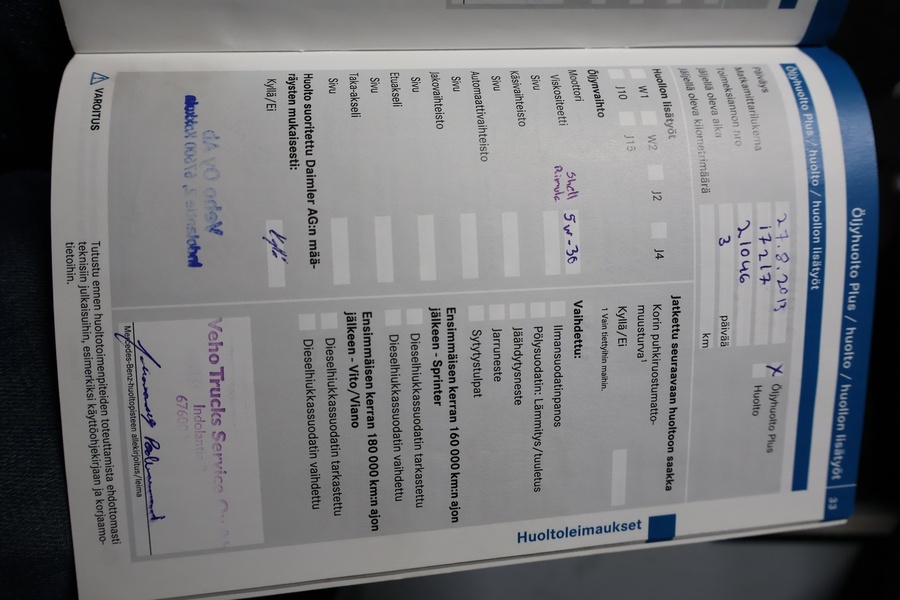 Öljyhuolto Plus / huolto / huollon lisätyöt 33
Öljyhuolto Plus / huolto / huollon lisätyöt
Päiväys 27.8.2013 X Öljyhuolto Plus
Matkamittarilukema 17217 Huolto
Toimeksiannon nro 21046
Jäljellä oleva aika 3 päivää
Jäljellä oleva kilometrimäärä km
Huollon lisätyöt
W1 W2 J2 J4
J10 J15
Öljynvaihto
Moottori Shell Rimula
Viskositeetti 5w-30
Sivu
Käsivaihteisto
Sivu
Automaattivaihteisto
Sivu
Jakovaihteisto
Sivu
Etuakseli
Sivu
Taka-akseli
Sivu
Huolto suoritettu Daimler AG:n mää-
räysten mukaisesti:
Kyllä/Ei Kyllä
Jatkettu seuraavaan huoltoon saakka
Korin puhkiruostumatto-
muusturva¹
Kyllä/Ei
1 Vain tietyihin maihin.
Vaihdettu:
Ilmansuodatinpanos
Pölysuodatin: Lämmitys/tuuletus
Jäähdytysneste
Jarruneste
Sytytystulpat
Ensimmäisen kerran 160 000 km:n ajon
jälkeen - Sprinter
Dieselhiukkassuodatin tarkastettu
Dieselhiukkassuodatin vaihdettu
Ensimmäisen kerran 180 000 km:n ajon
jälkeen - Vito/Viano
Dieselhiukkassuodatin tarkastettu
Dieselhiukkassuodatin vaihdettu
Veho Trucks Service
67600
Mercedes-Benz-huoltopisteen allekirjoitus/leima
VAROITUS
Tutustu ennen huoltotoimenpiteiden toteuttamista ehdottomasti
teknisiin julkaisuihin, esimerkiksi käyttöohjekirjaan ja korjaamo-
tietoihin.
Huoltoleimaukset